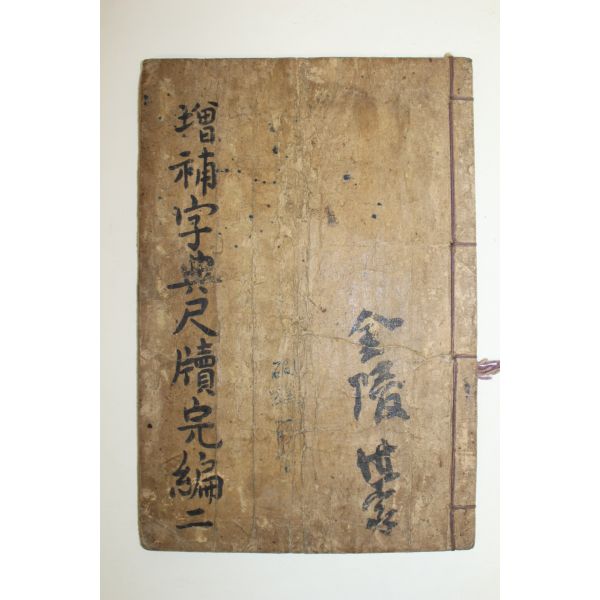 金陵
增補字典尺牘完編二